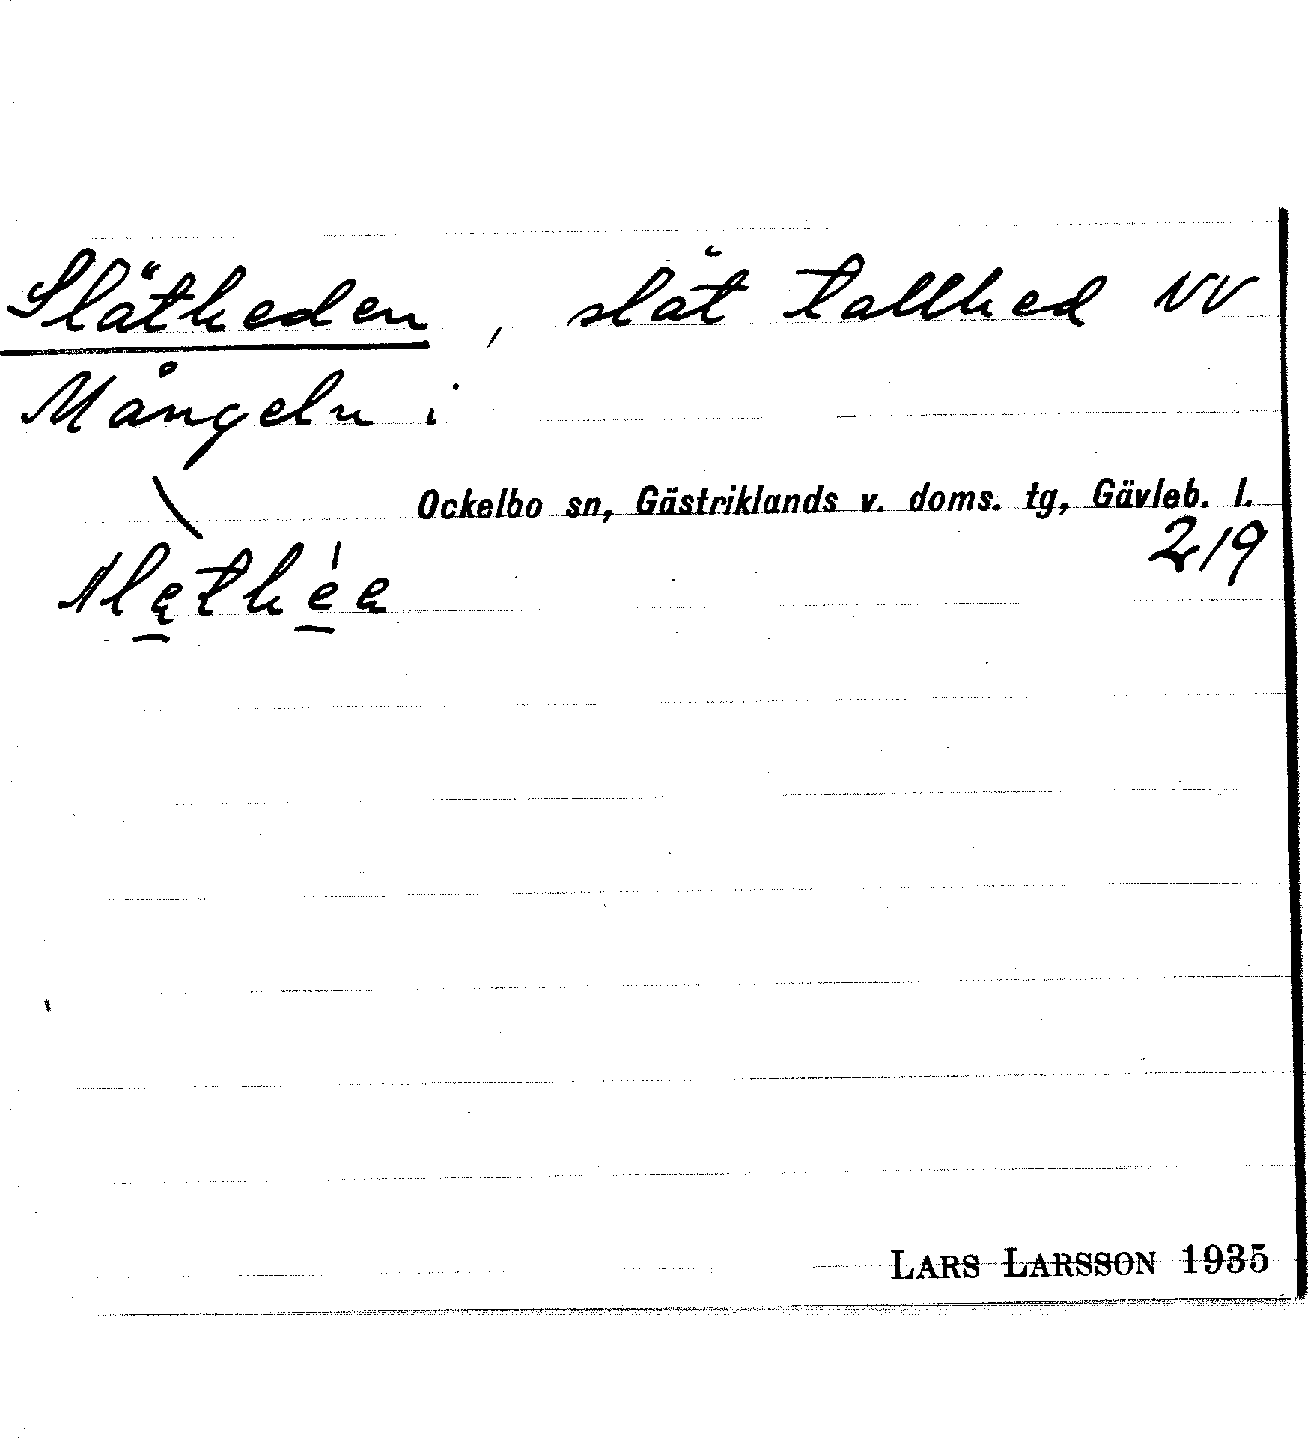 Slätheden, slät tallhed NV
Mångeln i
Ockelbo sn, Gästriklands v. doms. tg, Gävleb. l.
219
LARS LARSSON 1935